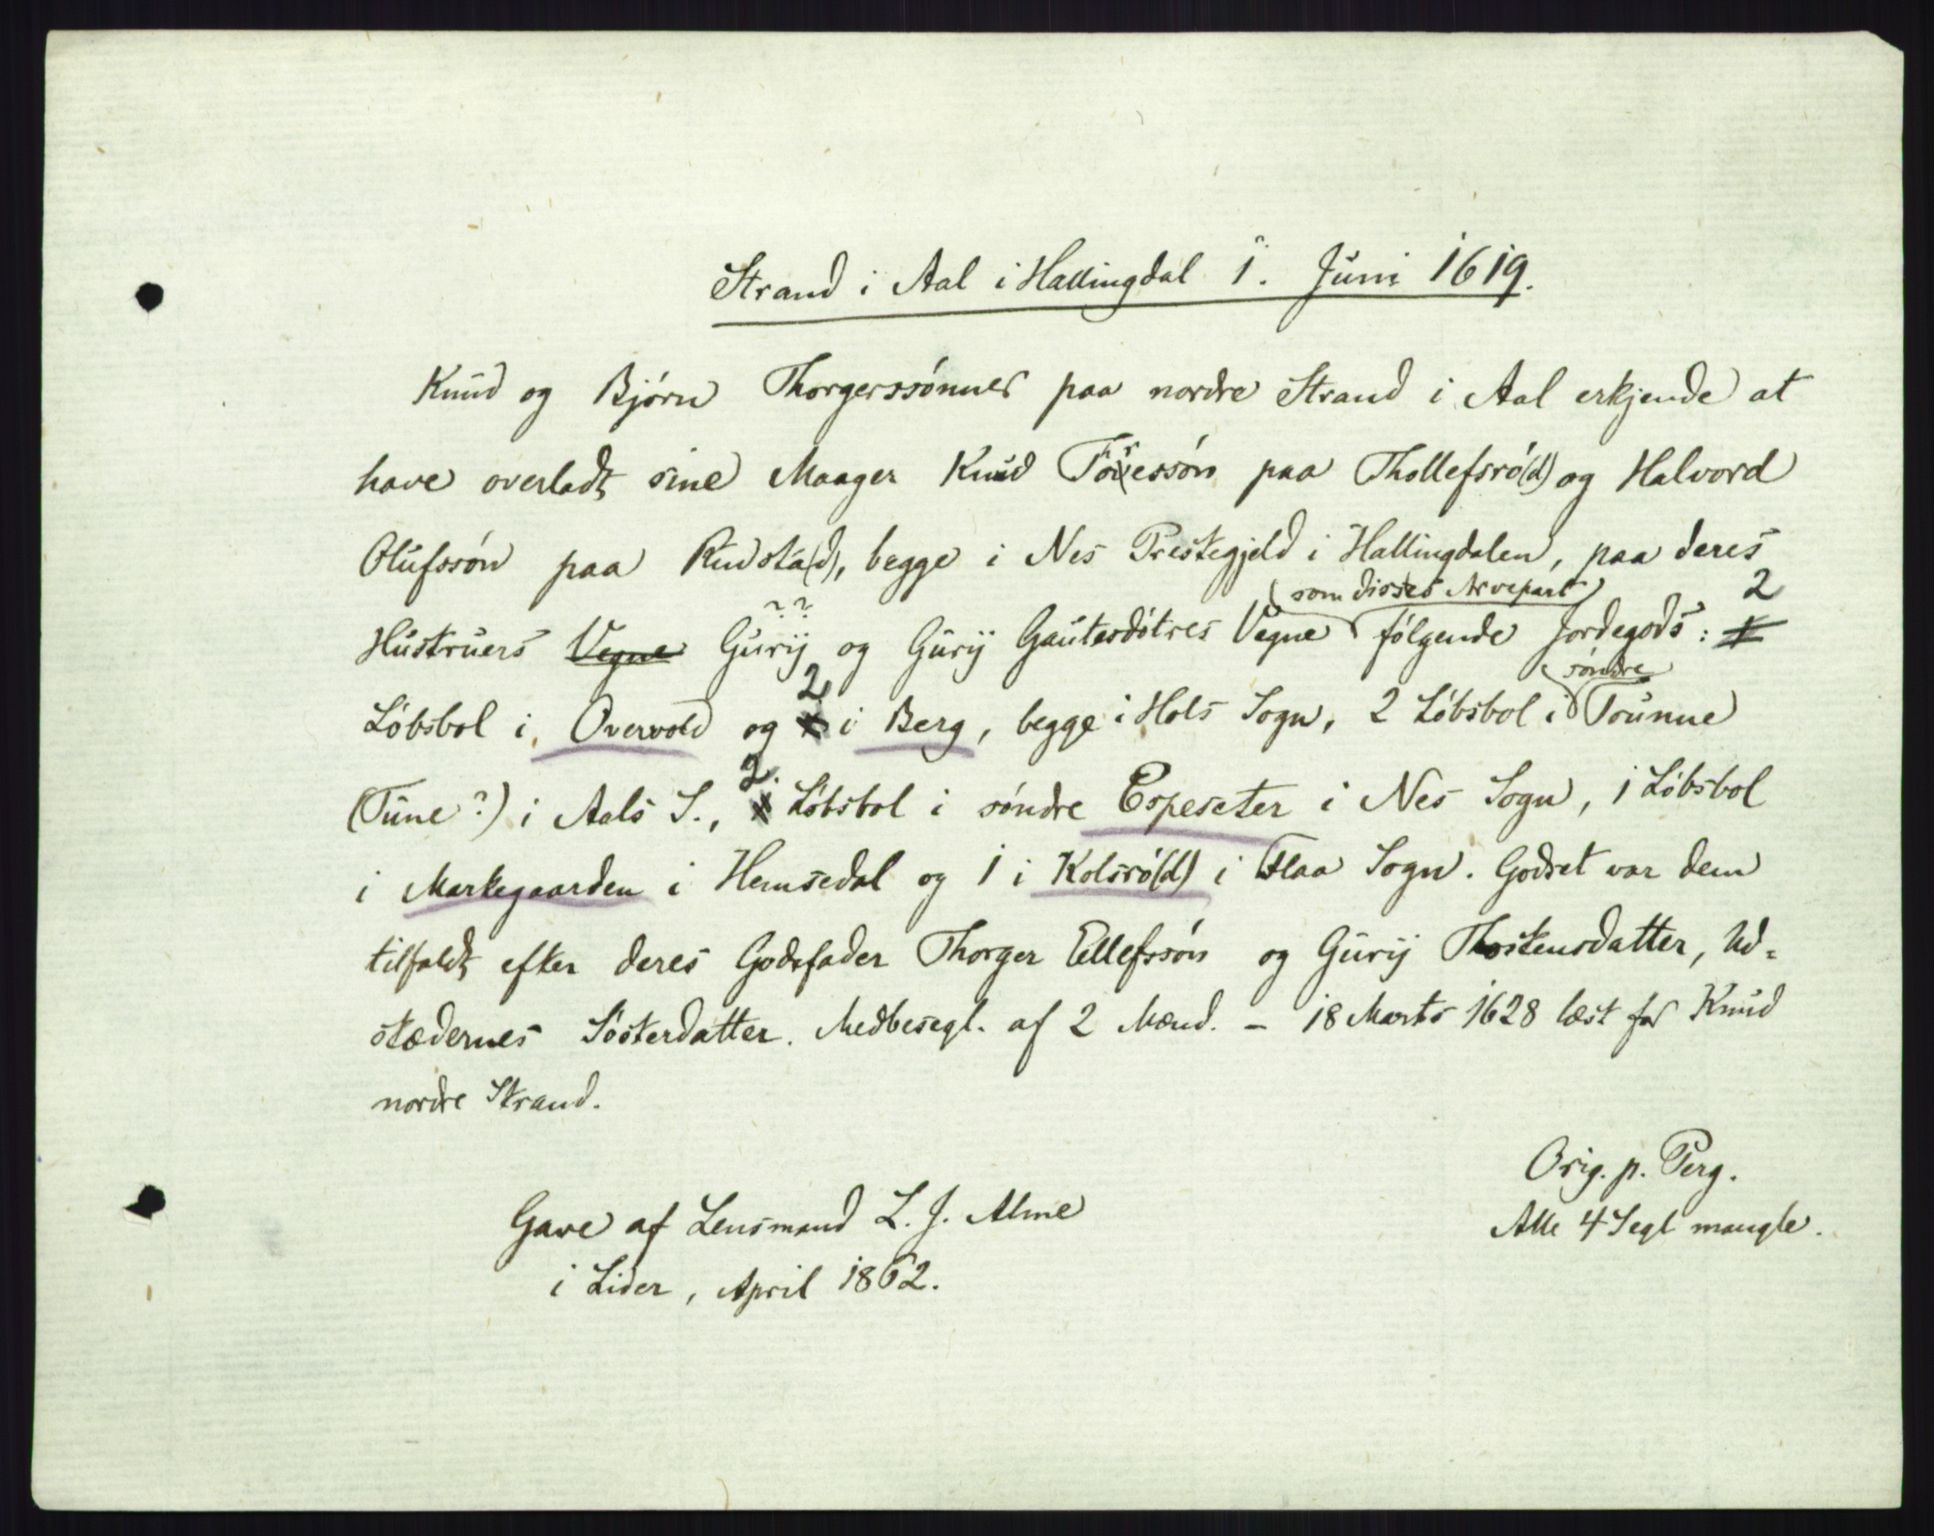 Strand i Aal i Hallingdal 1. Juni 1619.
Knud og Bjørn Thorgerssønner paa nordre Strand i Aal erkjende at
have overladt sine Maager Knud Toressøn paa Thollefsrø(d) og Halvord
Olufssøn paa Rudsta(d), begge i Nes Prestegjeld i Hallingdalen, paa deres
Hustruers Vegne Gurij og Gurij Gautesdøtres Vegne (som disses Arvepart) følgende Jordegods: 2
Løbsbol i Overvold og 2 i Berg, begge i Hols Sogn, 2 Løbsbol i søndre Tounne
(Tune?) i Aals S., 2 Løbsbol i søndre Espeseter i Nes Sogn, 1 Løbsbol
i Markegaarden i Hemsedal og 1 i Kolsrø(d) i Flaa Sogn. Godset var dem
tilfaldt efter deres Godefader Thorger Ellefssøn og Gurij Thostensdatter, Ud-
stædernes Søsterdatter. Medbesegl. af 2 Mænd. - 18 Marts 1628 læst for Knud
nordre Strand.
Orig. p. Perg.
Alle 4 Segl mangle.
Gave af Lensmand L. J. Alme
i Lider, April 1862.